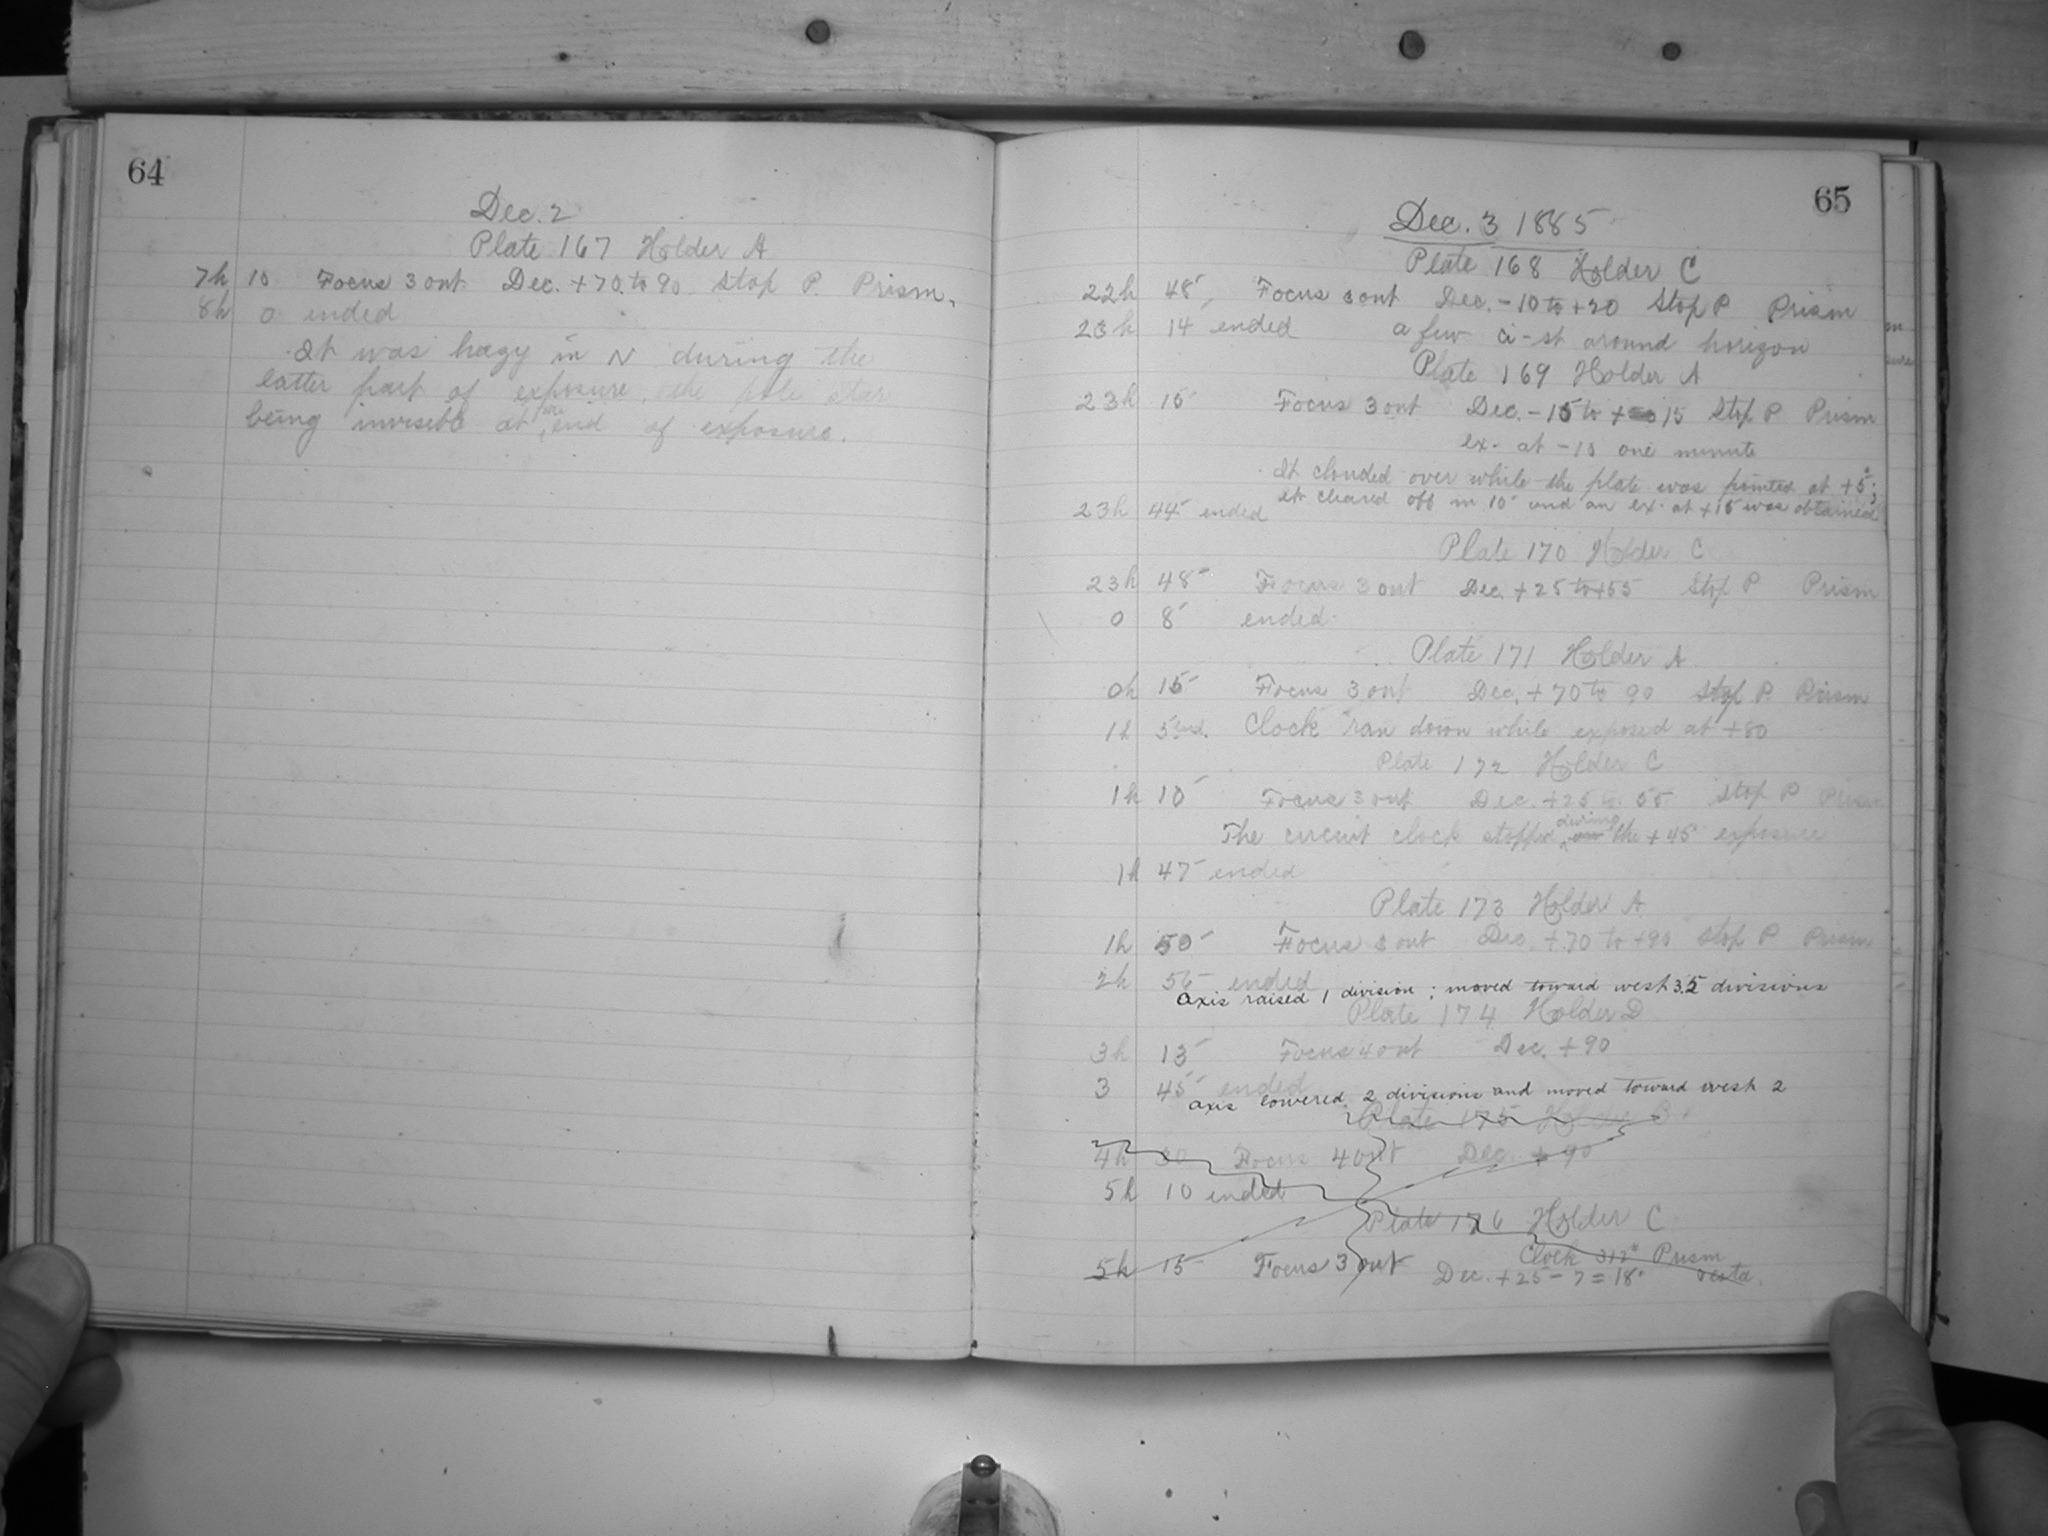 64
Dec. 2
Plate 167 Holder A
7h 10 Focus 3 out Dec. +70 to 90 Stop P. Prism.
8h 0 ended
It was hazy in N during the
latter part of exposure, the pole star
being invisible at the end of exposure.
65
Dec. 3 1885
Plate 168 Holder C
22h 48 Focus 3 out Dec. -10 to +20 Stop P Prism
23h 14 ended a few ci-st around horizon
Plate 169 Holder A
23h 15 Focus 3 out Dec. -15 to + 15 Stop P Prism
ex. at -10 one minute
It clouded over while the plate was pointed at +5°;
it cleared off in 10 and an ex. at +15 was obtained
23h 44 ended
Plate 170 Holder C
23h 48 Focus 3 out Dec. +25 to +55 Stop P Prism
0 8 ended.
Plate 171 Holder A
0h 15 Focus 3 out Dec. +70 to 90 Stop P. Prism
1h 5 end. Clock ran down while exposed at +80
Plate 172 Holder C
1h 10 Focus 3 out Dec. +25 to 55 Stop P Prism
The circuit clock stopped during the +45 exposure
1h 47 ended
Plate 173 Holder A
1h 50 Focus 3 out Dec. +70 to +90 Stop P Prism
2h 56 ended
axis raised 1 division; moved toward west 3.5 divisions
Plate 174 Holder D
3h 13 Focus 4 out Dec. +90
3 45 ended
axis lowered 2 divisions and moved toward west 2
Plate 175 Holder
4h 30 Focus 4 out Dec. +90
5h 10 ended
Plate 176 Holder C
Clock 312° Prism
5h 15 Focus 3 out Dec. +25 - 7 = 18°